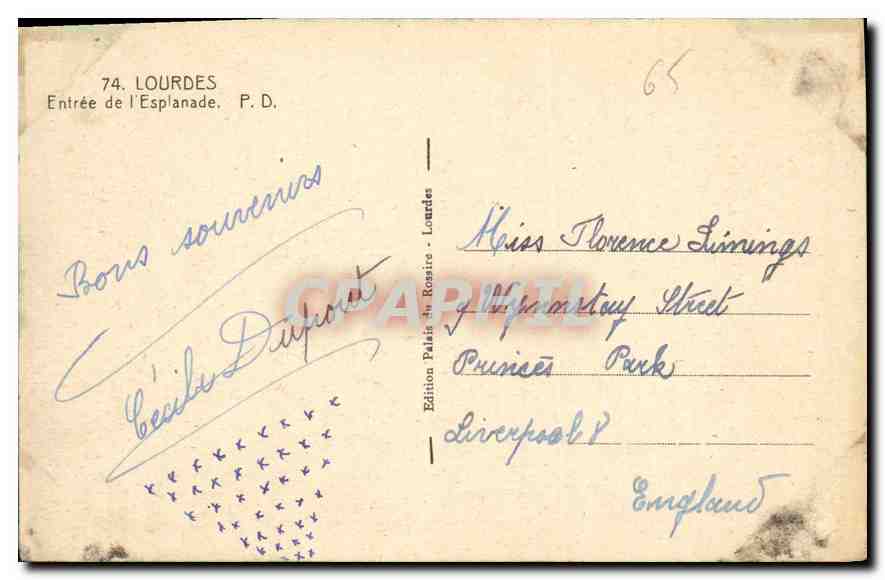 74. LOURDES
Entrée de l'Esplanade. P. D.
65
Bons souvenirs
Cécile Dupont
Edition Palais du Rossire - Lourdes
Miss Florence Limings
9 Wynnstay Street
Princes Park
Liverpool 8
England
CPAPHIL